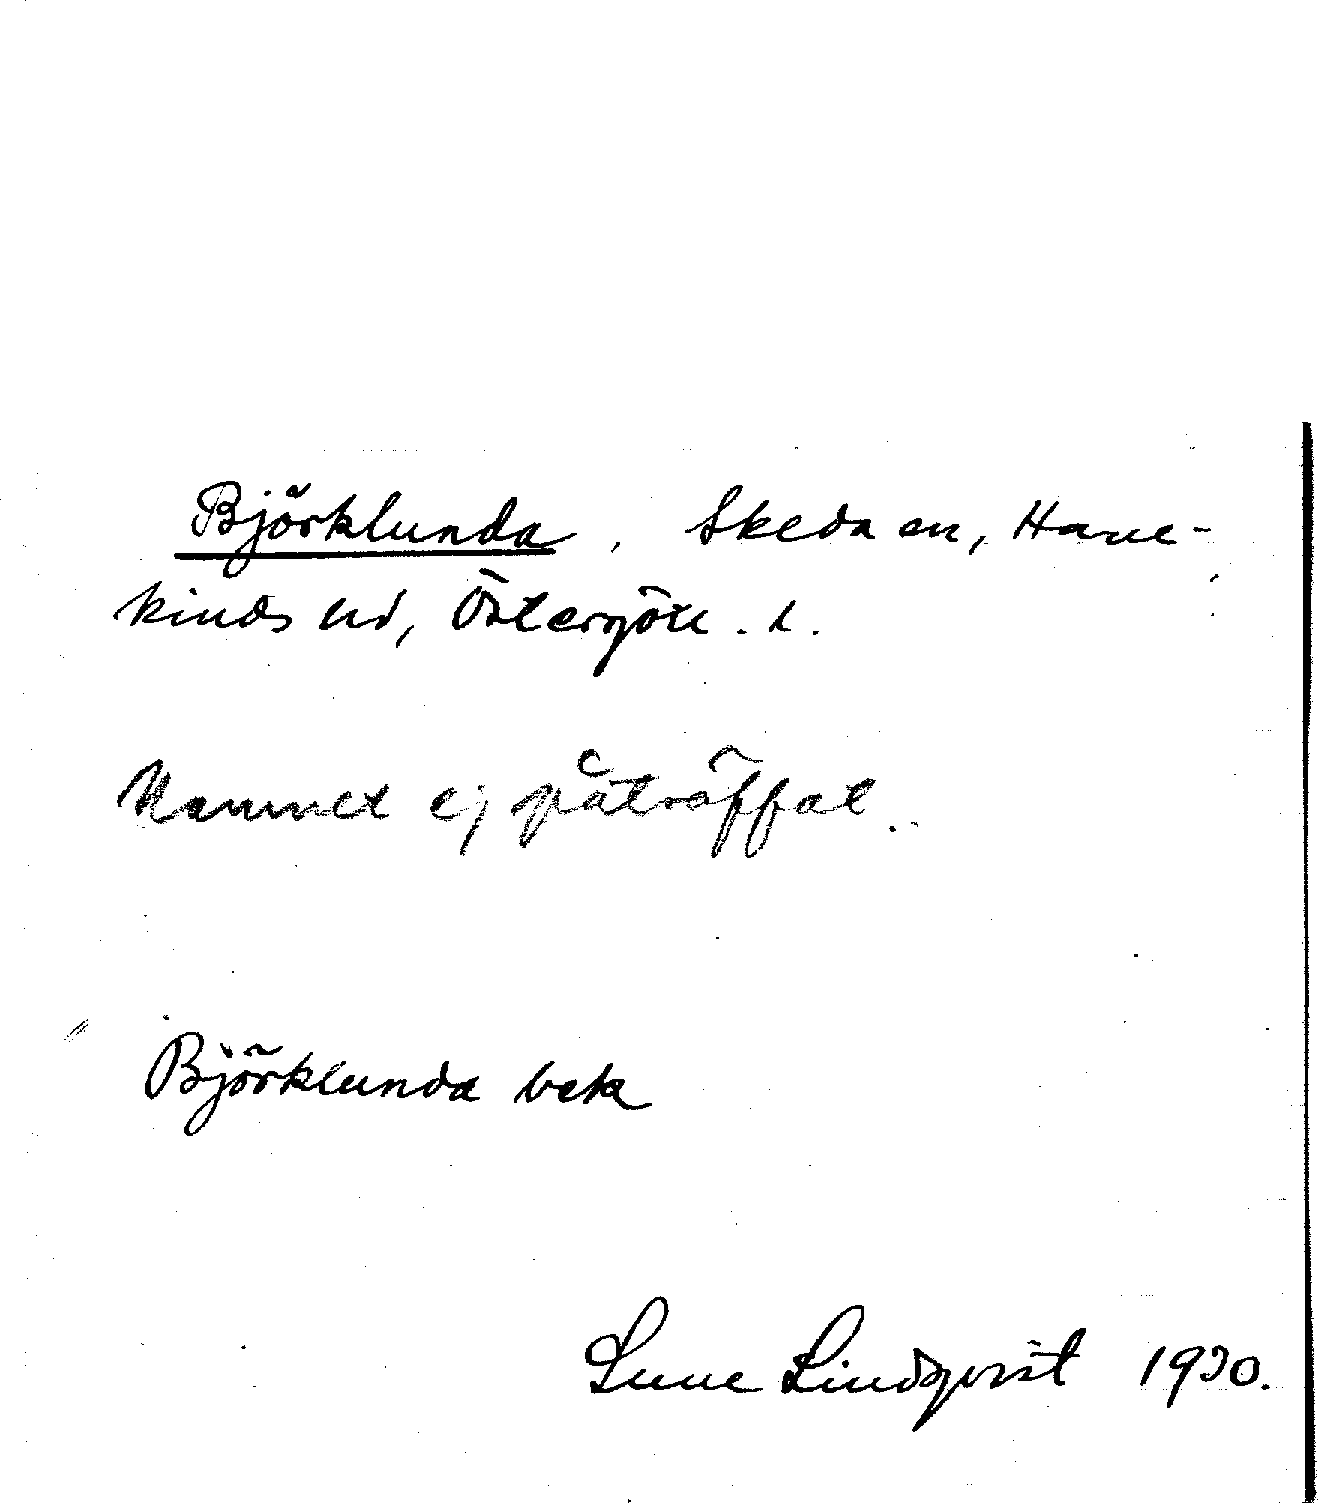 Björklunda, Skeda sn, Hane-
kinds hd, Östergötl. l.
Namnet ej påträffat.
Björklunda bek
Sune Lindqvist 1930.